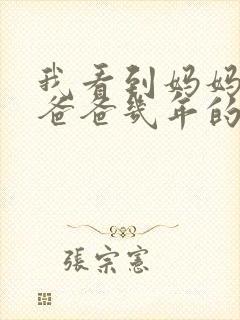 我看到妈妈
爸爸几年的
張宗憲